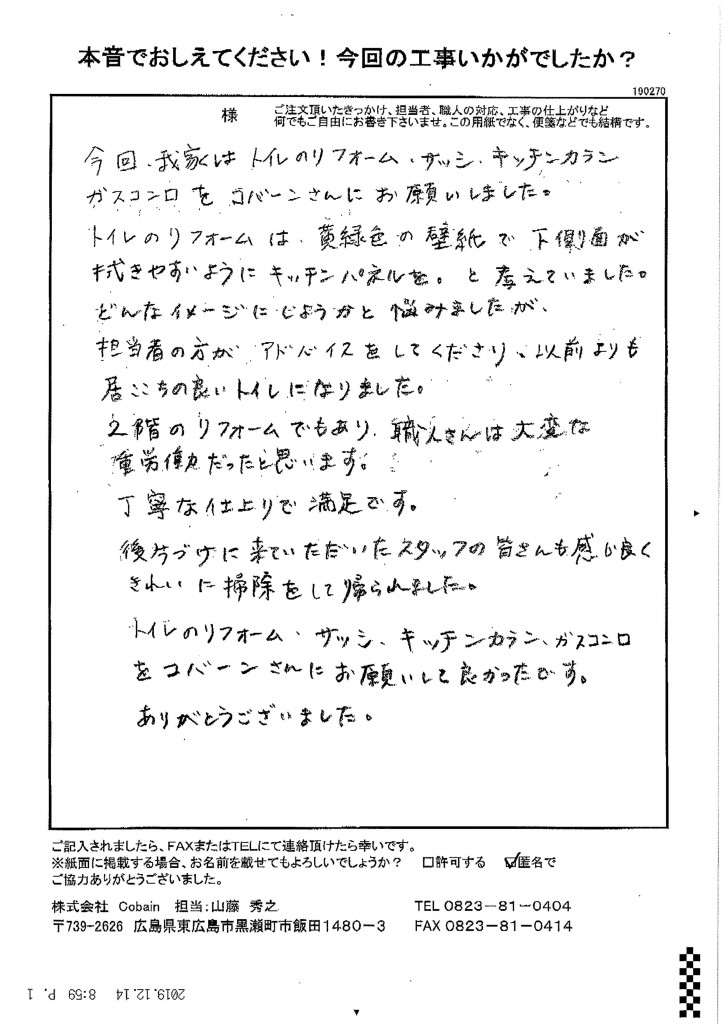 本音でおしえてください！今回の工事いかがでしたか？
190270
様
ご注文頂いたきっかけ、担当者、職人の対応、工事の仕上がりなど
何でもご自由にお書き下さいませ。この用紙でなく、便箋などでも結構です。
今回、我家はトイレのリフォーム・サッシ・キッチンカラン
ガスコンロをコバーンさんにお願いしました。
トイレのリフォームは、黄緑色の壁紙で下側面が
拭きやすいようにキッチンパネルを。と考えていました。
どんなイメージにしようかと悩みましたが、
担当者の方がアドバイスをしてくださり、以前よりも
居ごこちの良いトイレになりました。
2階のリフォームでもあり、職人さんは大変な
重労働だったと思います。
丁寧な仕上りで満足です。
後片づけに来ていただいたスタッフの皆さんも感じ良く
きれいに掃除をして帰られました。
トイレのリフォーム・サッシ・キッチンカラン、ガスコンロ
をコバーンさんにお願いして良かったです。
ありがとうございました。
ご記入されましたら、FAXまたはTELにて連絡頂けたら幸いです。
※紙面に掲載する場合、お名前を載せてもよろしいでしょうか？ □許可する ☑匿名で
ご協力ありがとうございました。
株式会社 Cobain 担当:山藤 秀之 TEL 0823－81－0404
〒739-2626 広島県東広島市黒瀬町市飯田1480－3 FAX 0823－81－0414
2019.12.14 8:59 P. 1